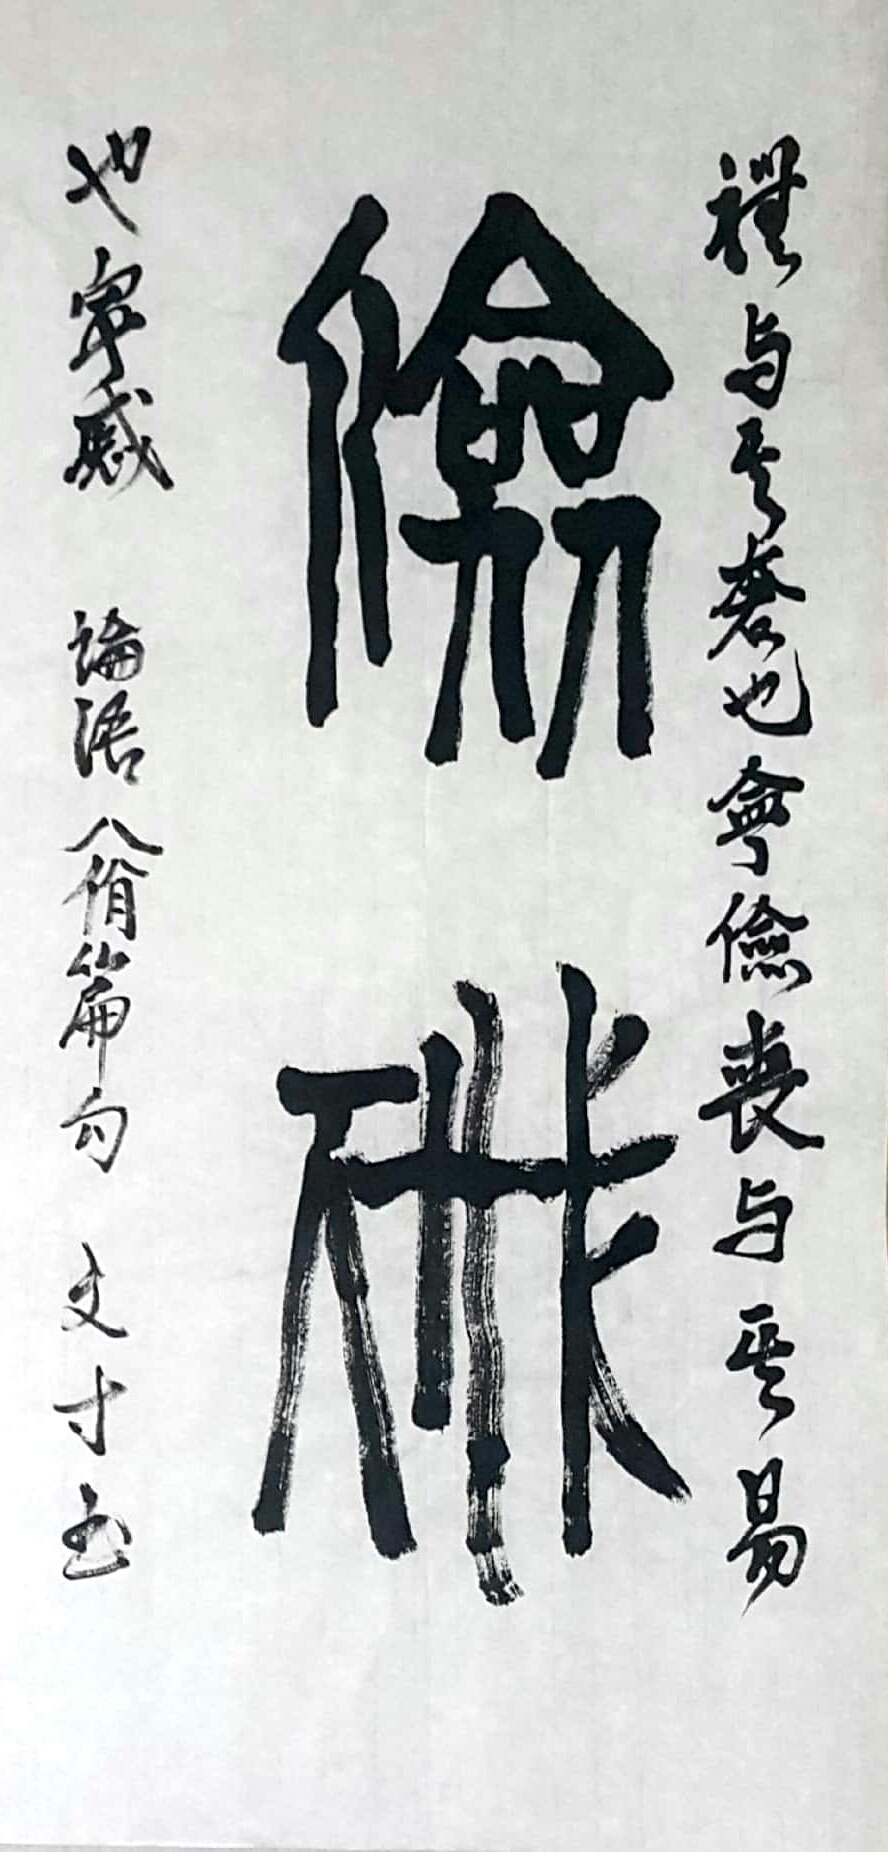 禮与其奢也寧儉喪与其易
儉戚
也寧戚 論語八佾篇句 文寸书